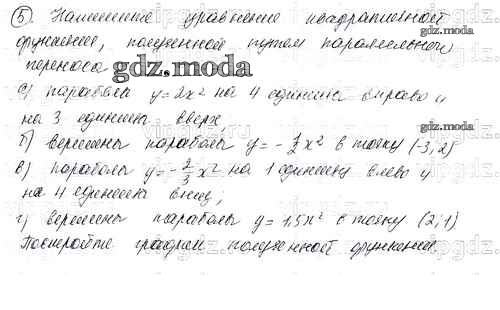 ⑤ Напишите уравнение квадратичной
функции, полученной путем параллельного
переноса
gdz.moda
а) параболы y = 2x² на 4 единицы вправо и
gdz.moda
на 3 единицы вверх
б) вершины параболы y = -½x² в точку (-3; 2)
в) параболы y = -⅔x² на 1 единицу влево и
на 4 единицы вниз;
gdz.moda
г) вершины параболы y = 1,5x² в точку (2; 1)
Постройте график полученной функции.